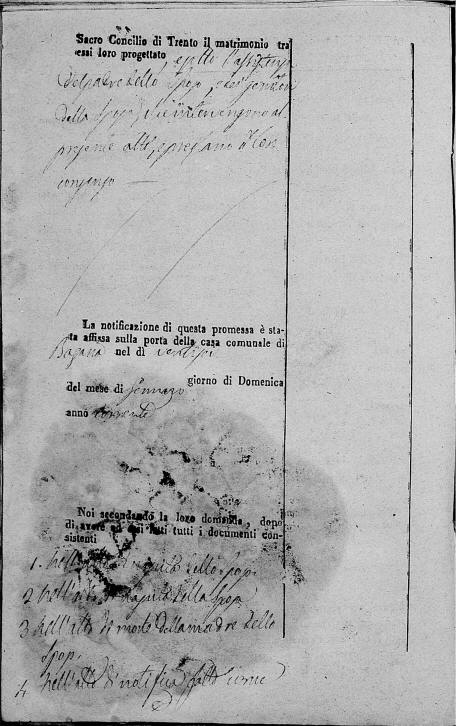 Sacro Concilio di Trento il matrimonio tra
essi loro progettato sotto l'assistenza
del padre dello Sposo, e dei genitori
della Sposa, che intervengono al
presente atto, e prestano il loro
consenso
La notificazione di questa promessa è sta-
ta affissa sulla porta della casa comunale di
nel dì
giorno di Domenica
del mese di Gennaro
anno corrente
Noi secondando la loro domanda, dopo
di avere ad essi letti tutti i documenti con-
sistenti
1. Nell'atto di nascita dello Sposo.
2 Nell'atto di nascita della Sposa
3 Nell'atto di morte della madre dello
Sposo.
4 Nell'atto di notifica fatto